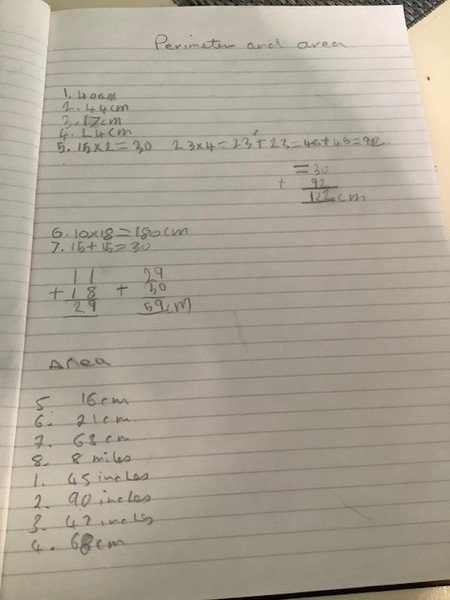 Perimeter and area
1. 40cm
2. 44cm
3. 17cm
4. 24cm
5. 15x2=30 23x4=23+23=46+46=92.
= 30
+ 92
122 cm
6. 10x18=180cm
7. 15+15=30
11 29
+ 18 + 30
29 59cm
Area
5. 16cm
6. 21cm
7. 63cm
8. 8 miles
1. 45 inches
2. 90 inches
3. 42 inches
4. 68cm